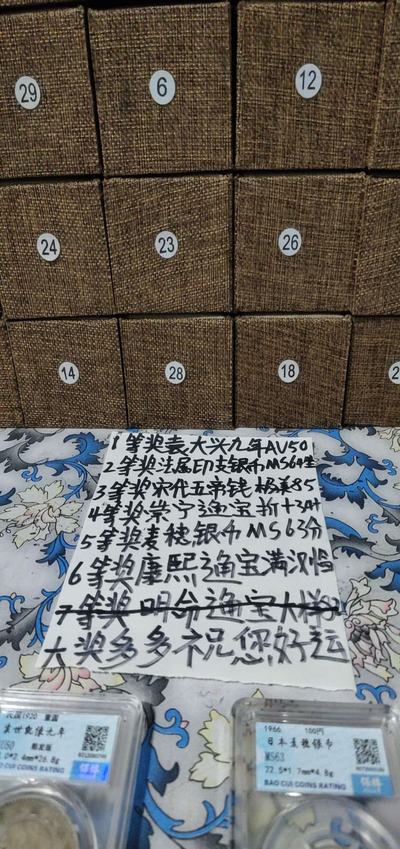 29
6
12
24
23
26
14
28
18
2
1等奖袁大头九年AU50
2等奖法属印支银币MS64
3等奖宋代五帝钱极美85
4等奖崇宁通宝折十
5等奖麦穗银币MS63分
6等奖康熙通宝满汉
7等奖明命通宝大样
大奖多多祝您好运
民国1920 重量
袁世凯像九年
U50
.0*2.4mm*26.8g
BAO CUI COINS RATING
1966 100円
日本麦穗银币
MS63
22.5*1.7mm*4.8g
BAO CUI COINS RATING